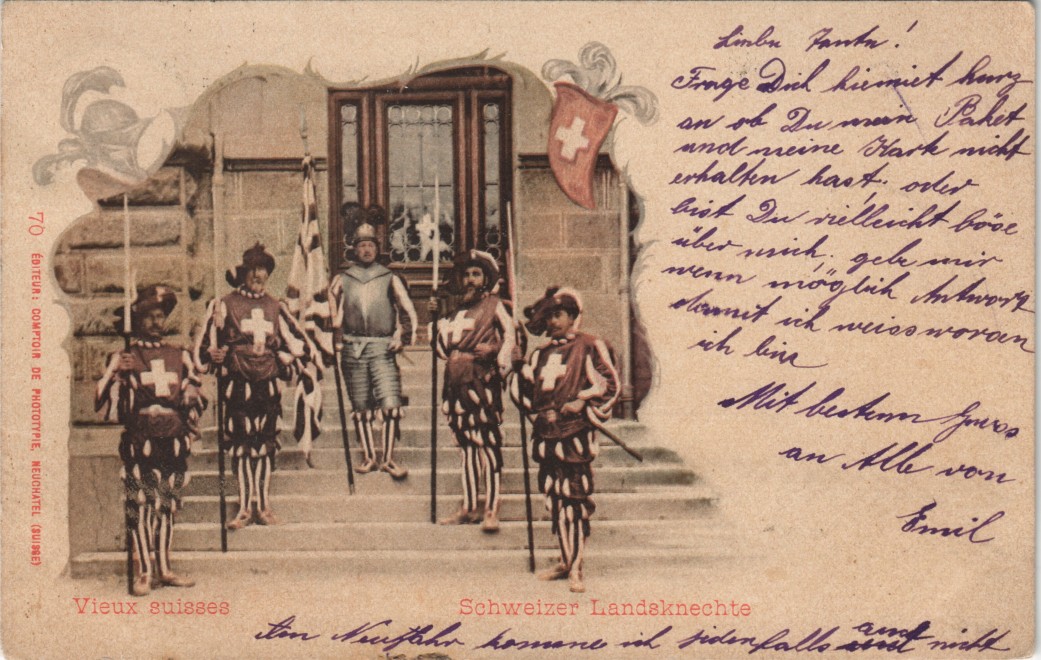 Liebe Tante!
Frage Dich hiemiet kurz
an ob Du mein Paket
und meine Kark nicht
erhalten hast. oder
bist Du vielleicht böse
über mich. gebe mir
wenn möglich Antwort
damit ich weiss woran
ich bin
Mit bestem Gruss
an Alle von
Emil
70 ÉDITEUR: COMPTOIR DE PHOTOTYPIE, NEUCHATEL (SUISSE)
Vieux suisses
Schweizer Landsknechte
Neujahr komme ich jedenfalls auch nicht